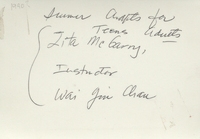 Summer Crafts for
Teens Adults
Zita McGarry,
Instructor
Wai Yin Chan